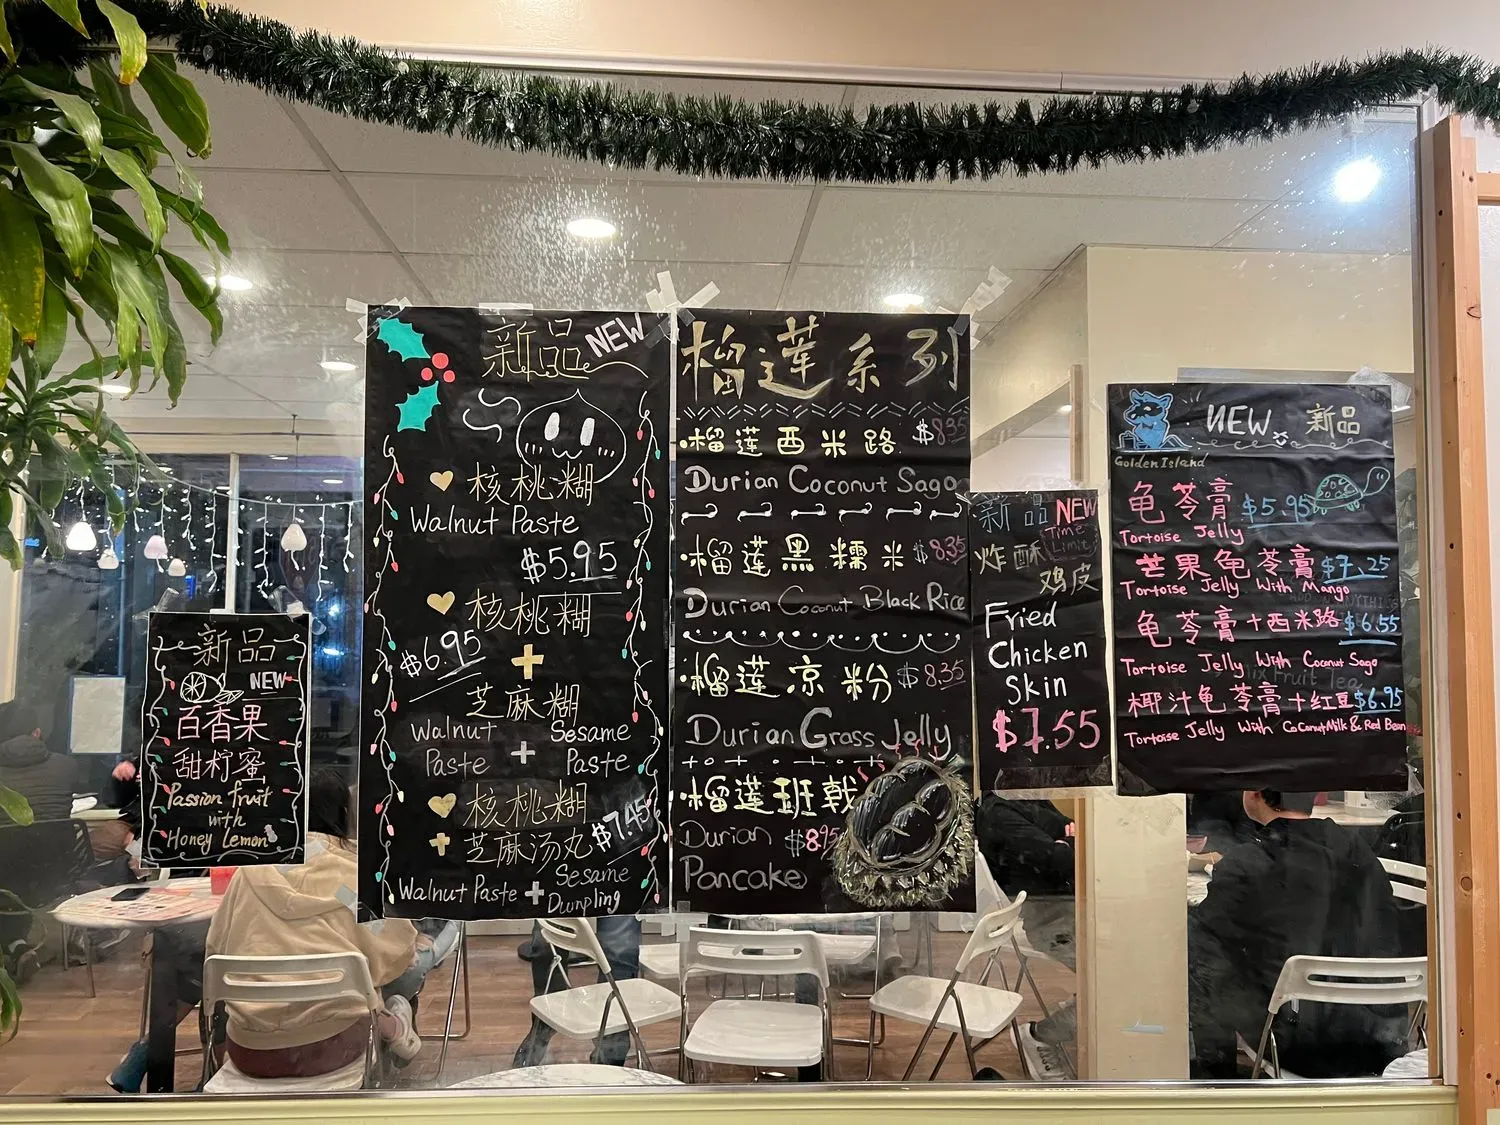 新品
NEW
百香果
甜柠蜜
Passion fruit
with
Honey Lemon
新品 NEW
核桃糊
Walnut Paste
$5.95
核桃糊
$6.95
+
芝麻糊
Walnut Paste + Sesame Paste
核桃糊
+ 芝麻汤丸 $7.45
Walnut Paste + Sesame Dumpling
榴莲系列
榴莲西米路 $8.35
Durian Coconut Sago
榴莲黑糯米 $8.35
Durian Coconut Black Rice
榴莲凉粉 $8.35
Durian Grass Jelly
榴莲班戟
Durian $8.95
Pancake
新品 NEW
Time Limit
炸酥
鸡皮
Fried
Chicken
Skin
$7.55
NEW 新品
Golden Island
龟苓膏 $5.95
Tortoise Jelly
芒果龟苓膏 $7.25
Tortoise Jelly With Mango
龟苓膏+西米路 $6.55
Tortoise Jelly With Coconut Sago
椰汁龟苓膏+红豆 $6.95
Tortoise Jelly With CoConutMilk & Red Bean